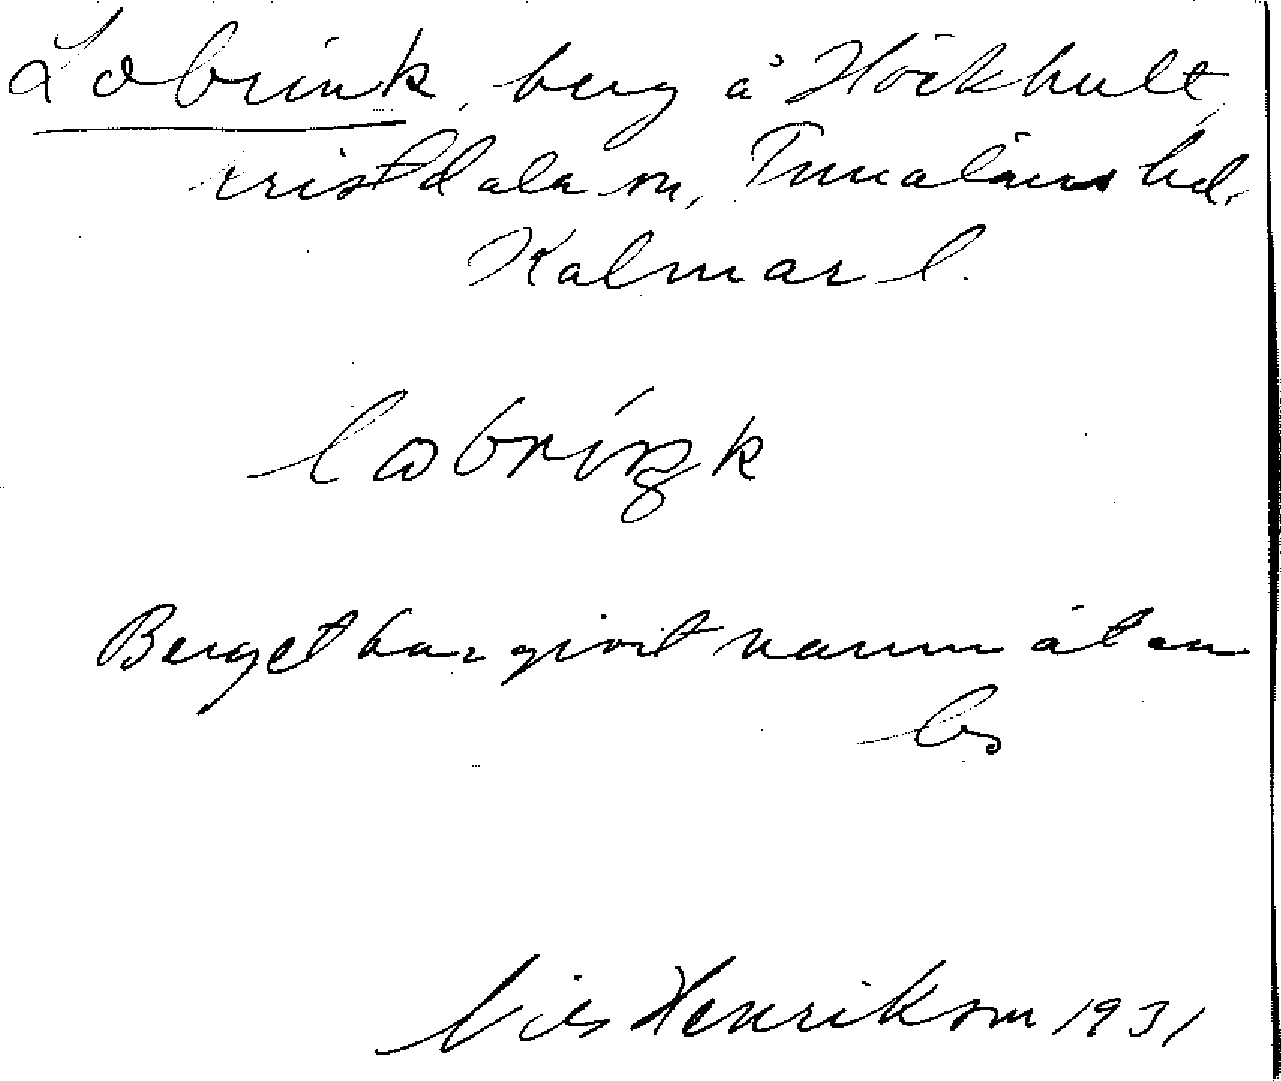 Lobrink, berg å Hökhult,
Kristdala sn, Tunaläns hd.
Kalmar l.
Berget har givit namn åt en
Nils Henrikson 1931